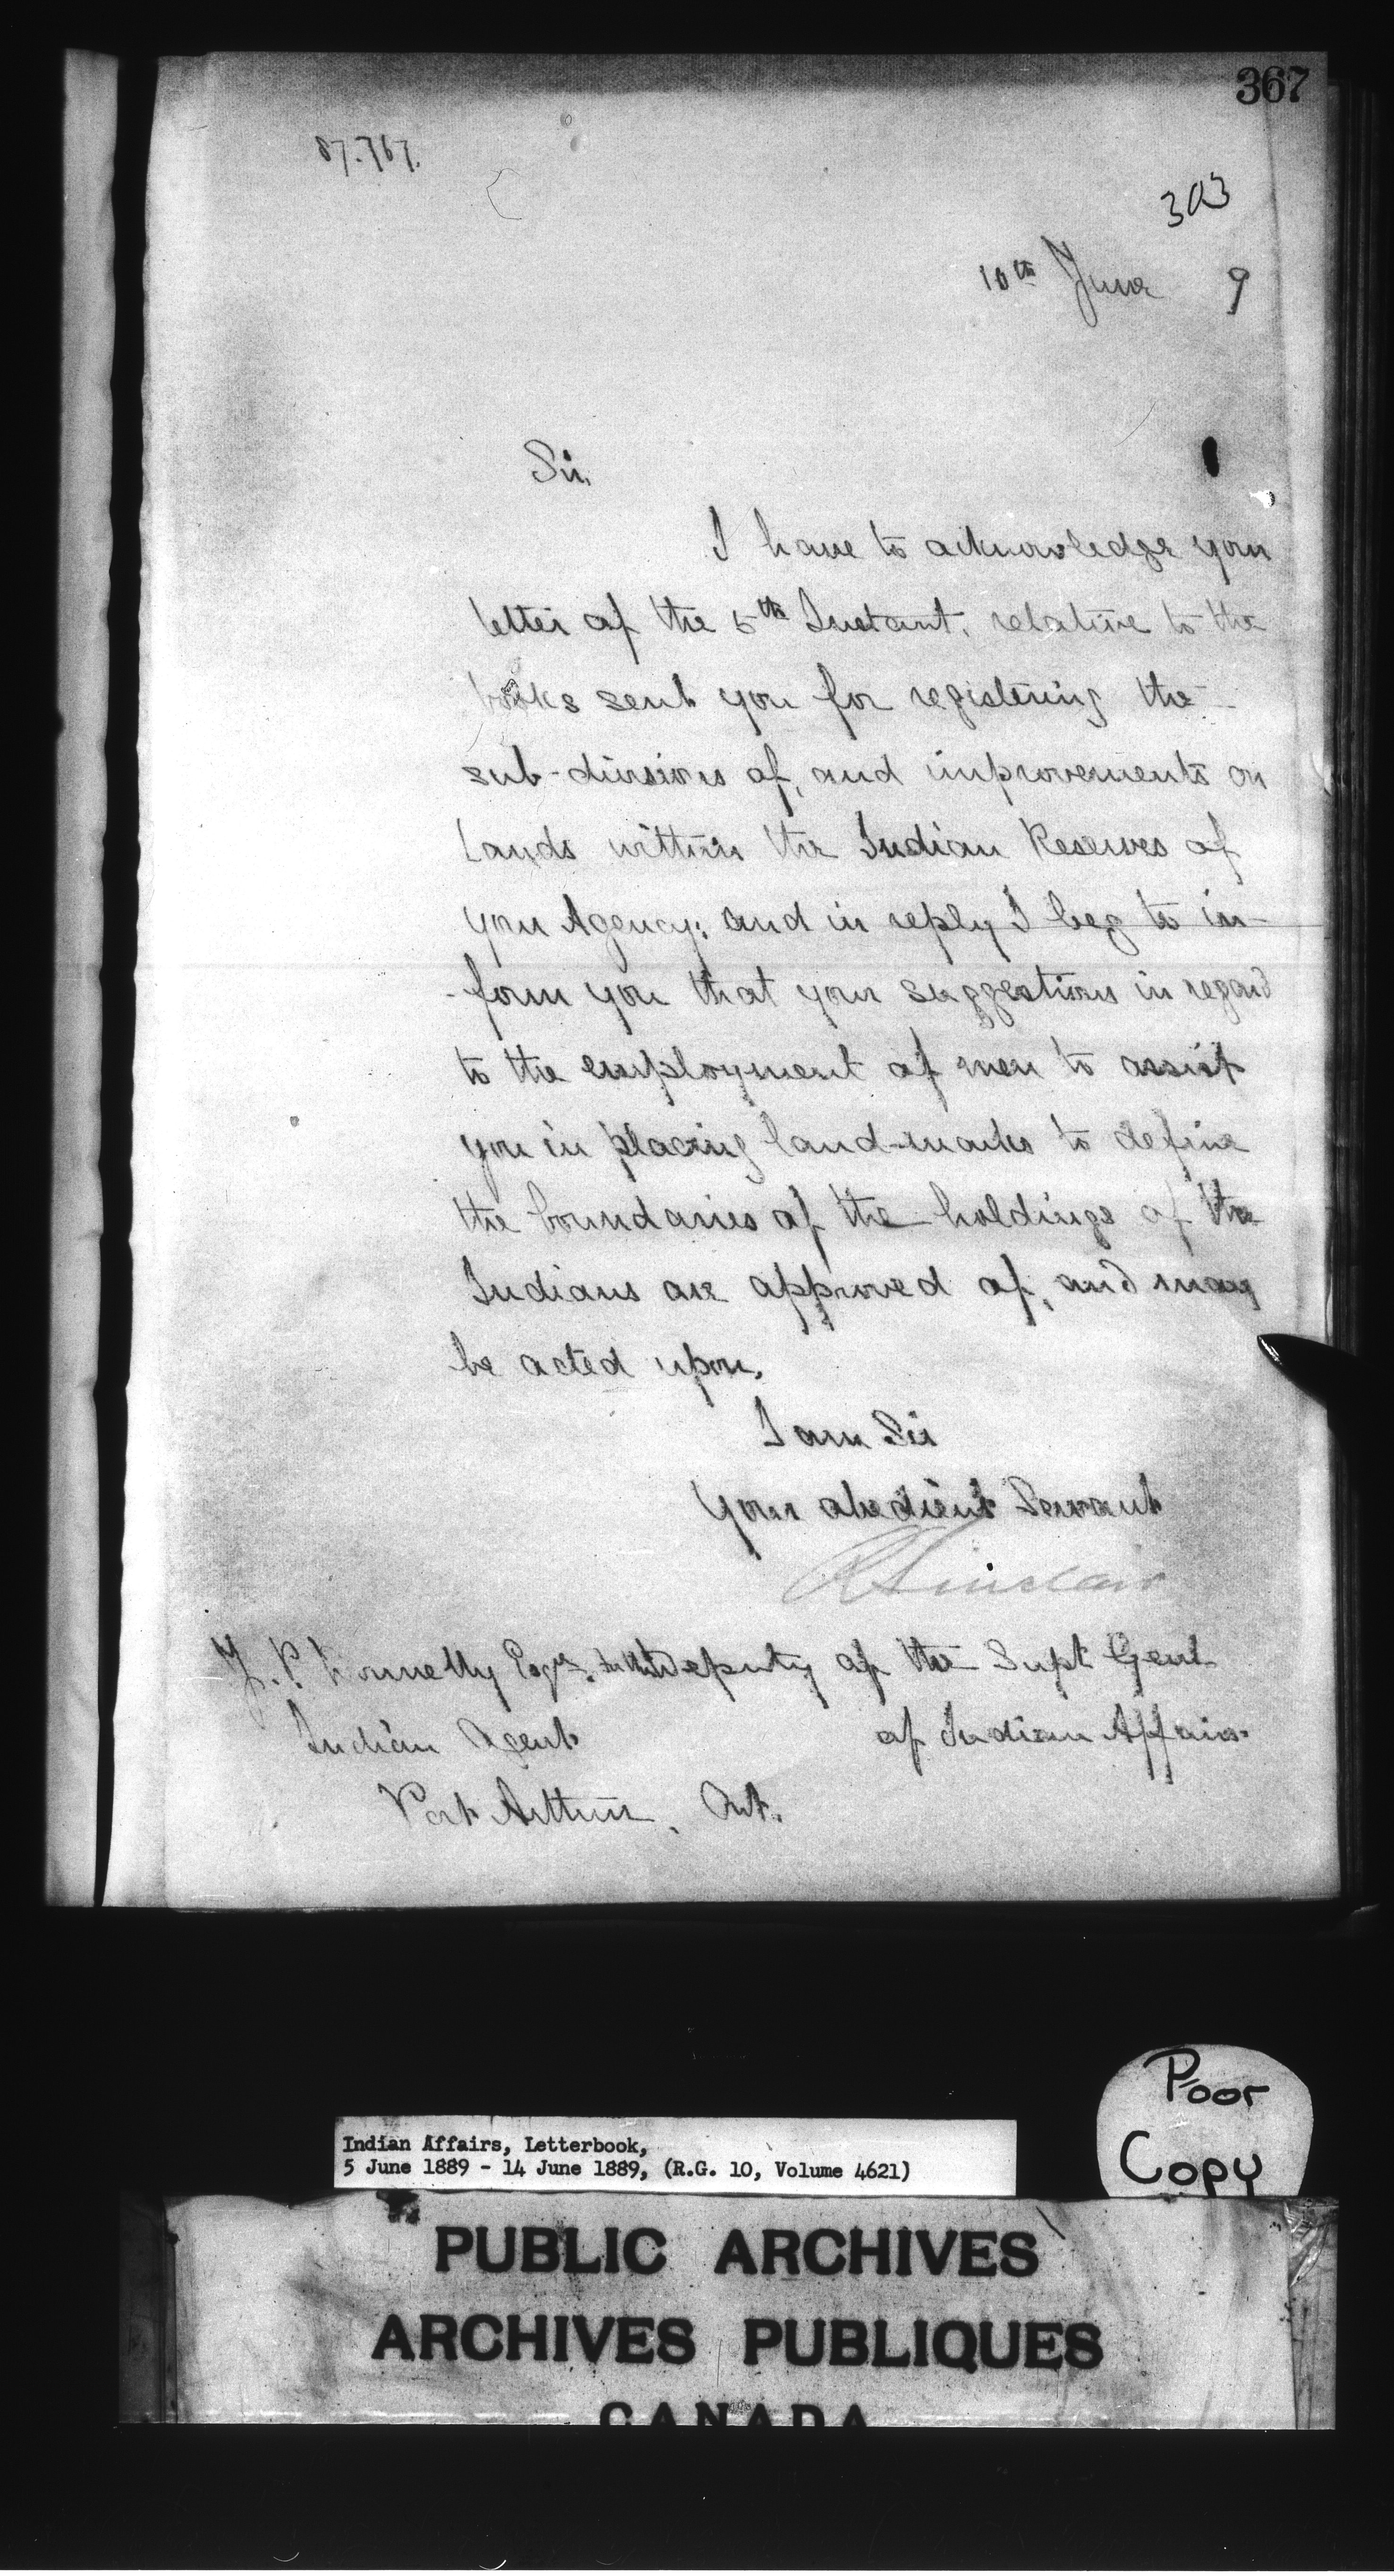 367
87.767.
303
10th June 9
Sir,
I have to acknowledge your
letter of the 5th Instant, relative to the
books sent you for registering the
sub-divisions of, and improvements on
Lands within the Indian Reserves of
your Agency; and in reply I beg to in-
-form you that your suggestions in regard
to the employment of men to assist
you in placing land-marks to define
the boundaries of the holdings of the
Indians are approved of, and may
be acted upon.
I am Sir
Your obedient Servant
R Sinclair
J. P. Donnelly Esqre. for the Deputy of the Supt Genl
Indian Agent of Indian Affairs.
Port Arthur, Ont.
Poor
Copy
Indian Affairs, Letterbook,
5 June 1889 - 14 June 1889, (R.G. 10, Volume 4621)
PUBLIC ARCHIVES
ARCHIVES PUBLIQUES
CANADA